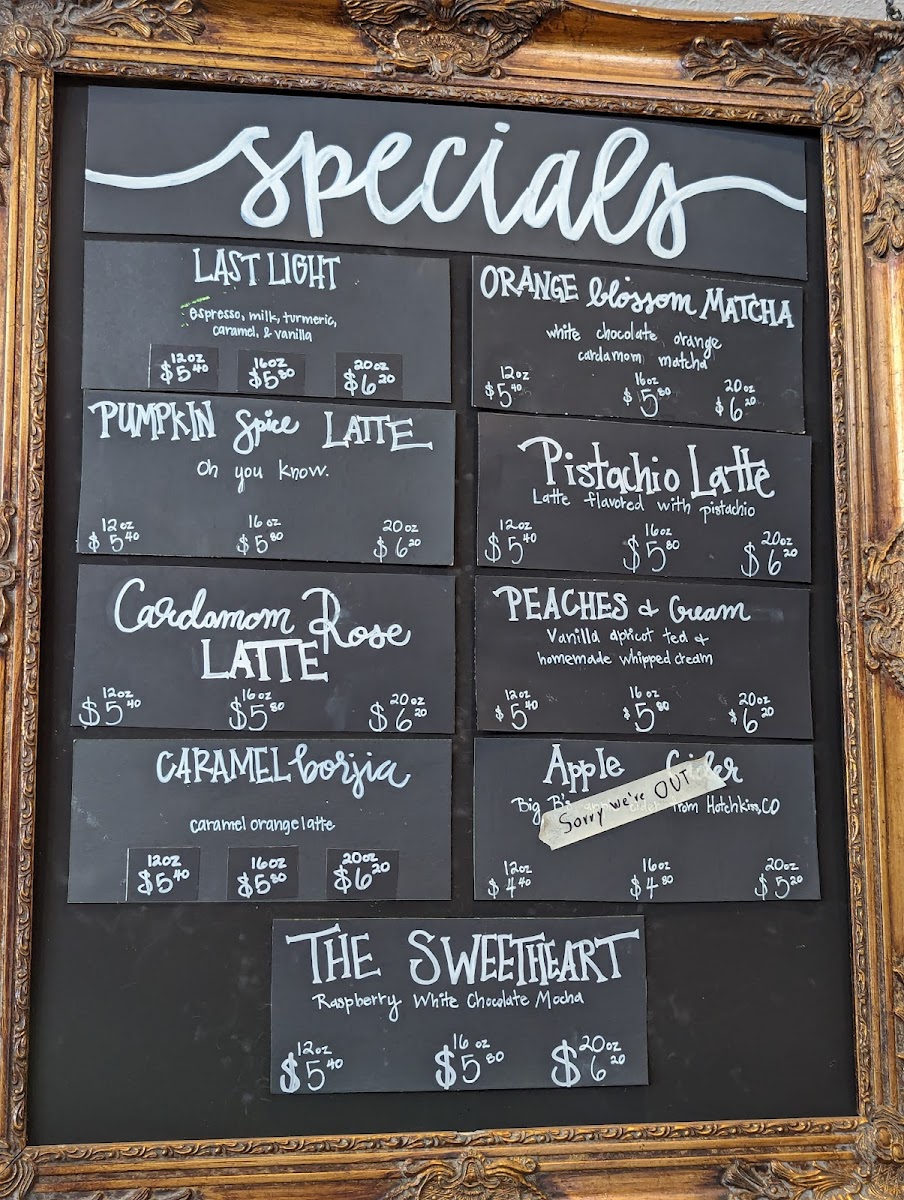 specials
LAST LIGHT
espresso, milk, turmeric,
caramel, & vanilla
12oz 16oz 20oz
$5.40 $5.80 $6.20
PUMPKIN Spice LATTE
oh you know.
12oz 16oz 20oz
$5.40 $5.80 $6.20
Cardamom Rose
LATTE
12oz 16oz 20oz
$5.40 $5.80 $6.20
CARAMEL borjia
caramel orange latte
12oz 16oz 20oz
$5.40 $5.80 $6.20
ORANGE blossom MATCHA
white chocolate orange
cardamom matcha
12oz 16oz 20oz
$5.40 $5.80 $6.20
Pistachio Latte
Latte flavored with pistachio
12oz 16oz 20oz
$5.40 $5.80 $6.20
PEACHES & Cream
Vanilla apricot tea +
homemade whipped cream
12oz 16oz 20oz
$5.40 $5.80 $6.20
Apple Cider
Big B's cider from Hotchkiss, CO
Sorry we're OUT
12oz 16oz 20oz
$4.40 $4.80 $5.20
THE SWEETHEART
Raspberry White Chocolate Mocha
12oz 16oz 20oz
$5.40 $5.80 $6.20